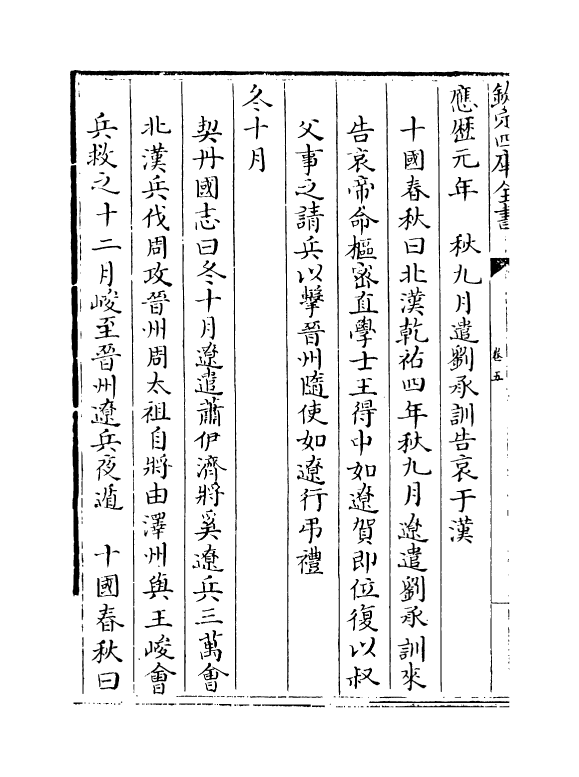 欽定四庫全書
卷五
應歴元年　秋九月遣劉承訓告哀于漢
十國春秋曰北漢乾祐四年秋九月遼遣劉承訓來
告哀帝命樞密直學士王得中如遼賀即位復以叔
父事之請兵以擊晉州隨使如遼行弔禮
冬十月
契丹國志曰冬十月遼遣蕭伊濟將奚遼兵三萬會
北漢兵伐周攻晉州周太祖自將由澤州與王峻會
兵救之十二月峻至晉州遼兵夜遁　十國春秋曰